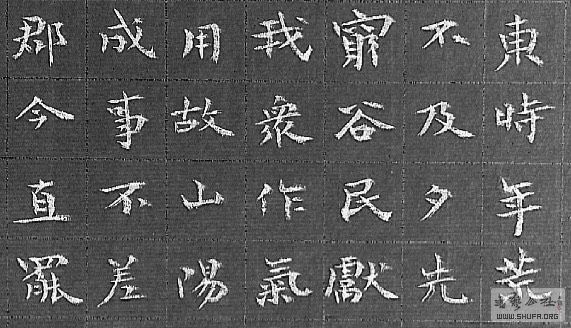 東時年荒
不及夕先
窮谷民獻
我衆作氣
用故山陽
成事不差
郡今直罷
WWW.SHUFA.ORG